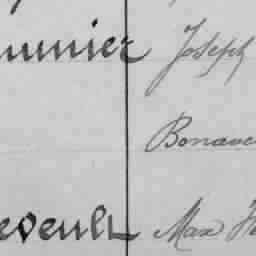 unier Joseph
Bonave
eveult Max